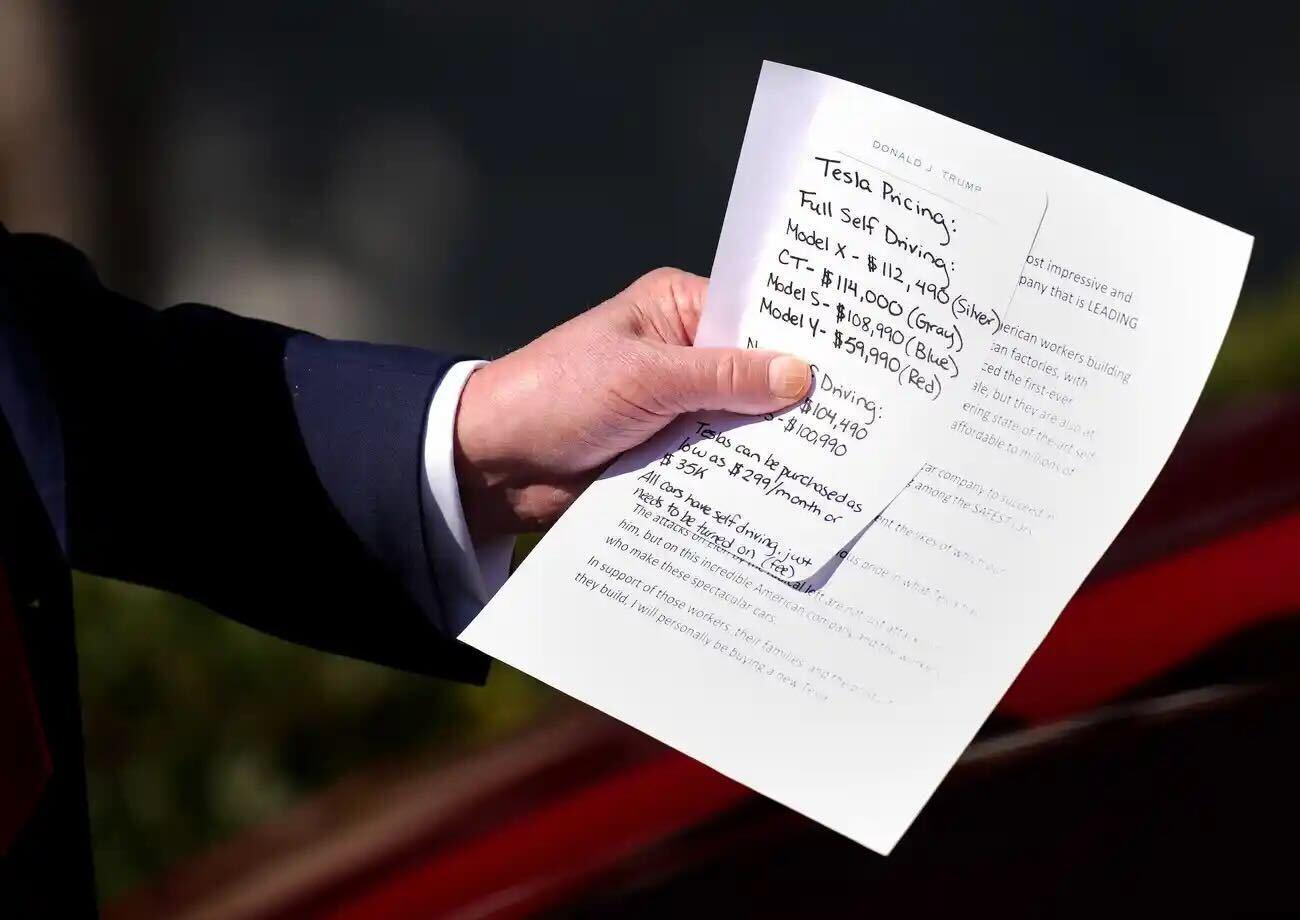 DONALD J. TRUMP
Tesla Pricing:
Full Self Driving:
Model X - $112,490 (Silver)
CT - $114,000 (Gray)
Model S - $108,990 (Blue)
Model Y - $59,990 (Red)
Driving:
$104,490
- $100,990
Teslas can be purchased as
low as $299/month or
$35K
All cars have self driving, just
needs to be turned on (fee)
ost impressive and
pany that is LEADING
erican workers building
can factories, with
ced the first-ever
ale, but they are also at
ering state-of-the-art self
affordable to millions of
car company to succeed in
among the SAFEST
ent the likes of which our
pride in what Tesla has
The attacks on left are not just
him, but on this incredible American company, and the workers
who make these spectacular cars.
In support of those workers, their families, and the
they build, I will personally be buying a new Tesla